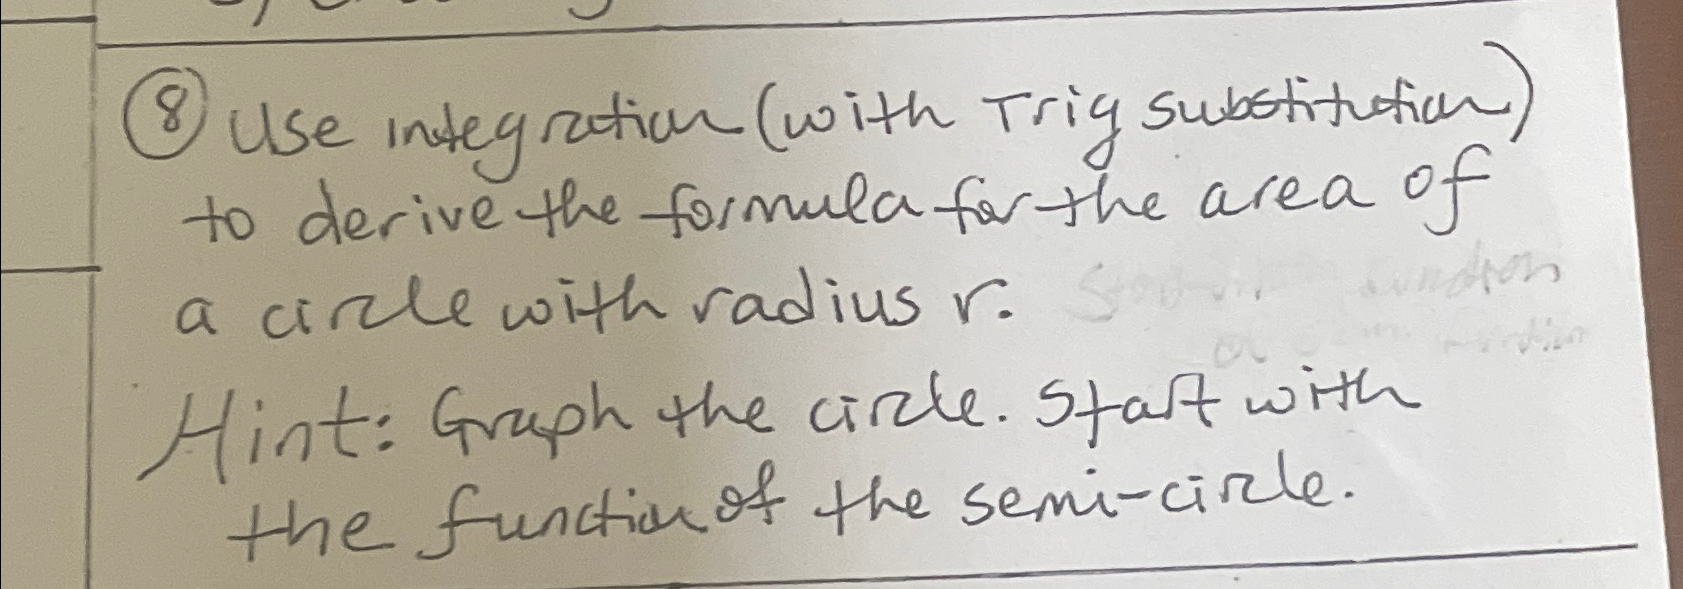 ⑧ Use integration (with Trig substitution)
to derive the formula for the area of
a circle with radius r.
Hint: Graph the circle. Start with
the function of the semi-circle.